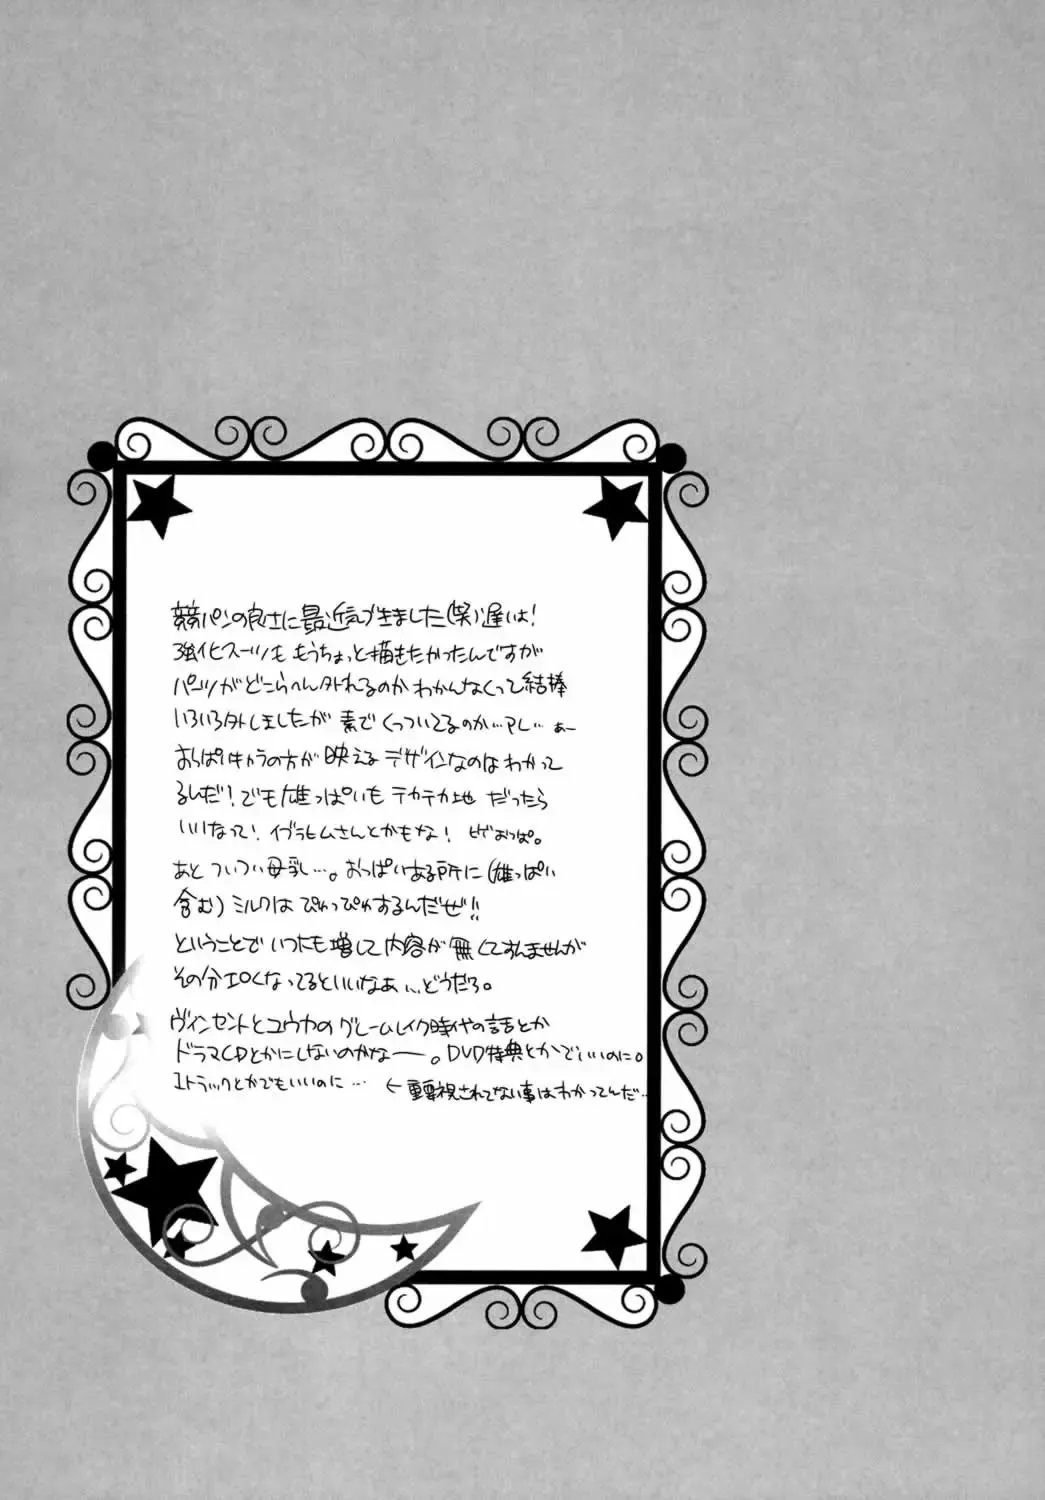 競パンの良さに最近気づきました(笑)遅いよ!
強化スーツも もうちょっと描きたかったんですが
パンツがどこらへん外れるのか わかんなくって結構
いろいろ外しましたが 素でくっついてるのか…アレ… あー
おっぱいキャラの方が 映える デザインなのは わかって
るんだ!でも雄っぱいも テカテカ地 だったら
いいなって! イブラヒムさんとかもな! ビバおっぱ。
あと ついつい母乳…。おっぱいある所に(雄っぱい
含む)ミルクは ぴゅっぴゅするんだぜ!!
ということで いつにも増して内容が 無くてすんませんが
その分エロくなってるといいなぁ…どうだろ。
ヴィンセントとユウカの グレームレイク時代の話とか
ドラマCDとかにしないのかなー。DVD特典とかでいいのに。
1トラックとかでもいいのに… ← 重要視されてない事はわかってんだ…